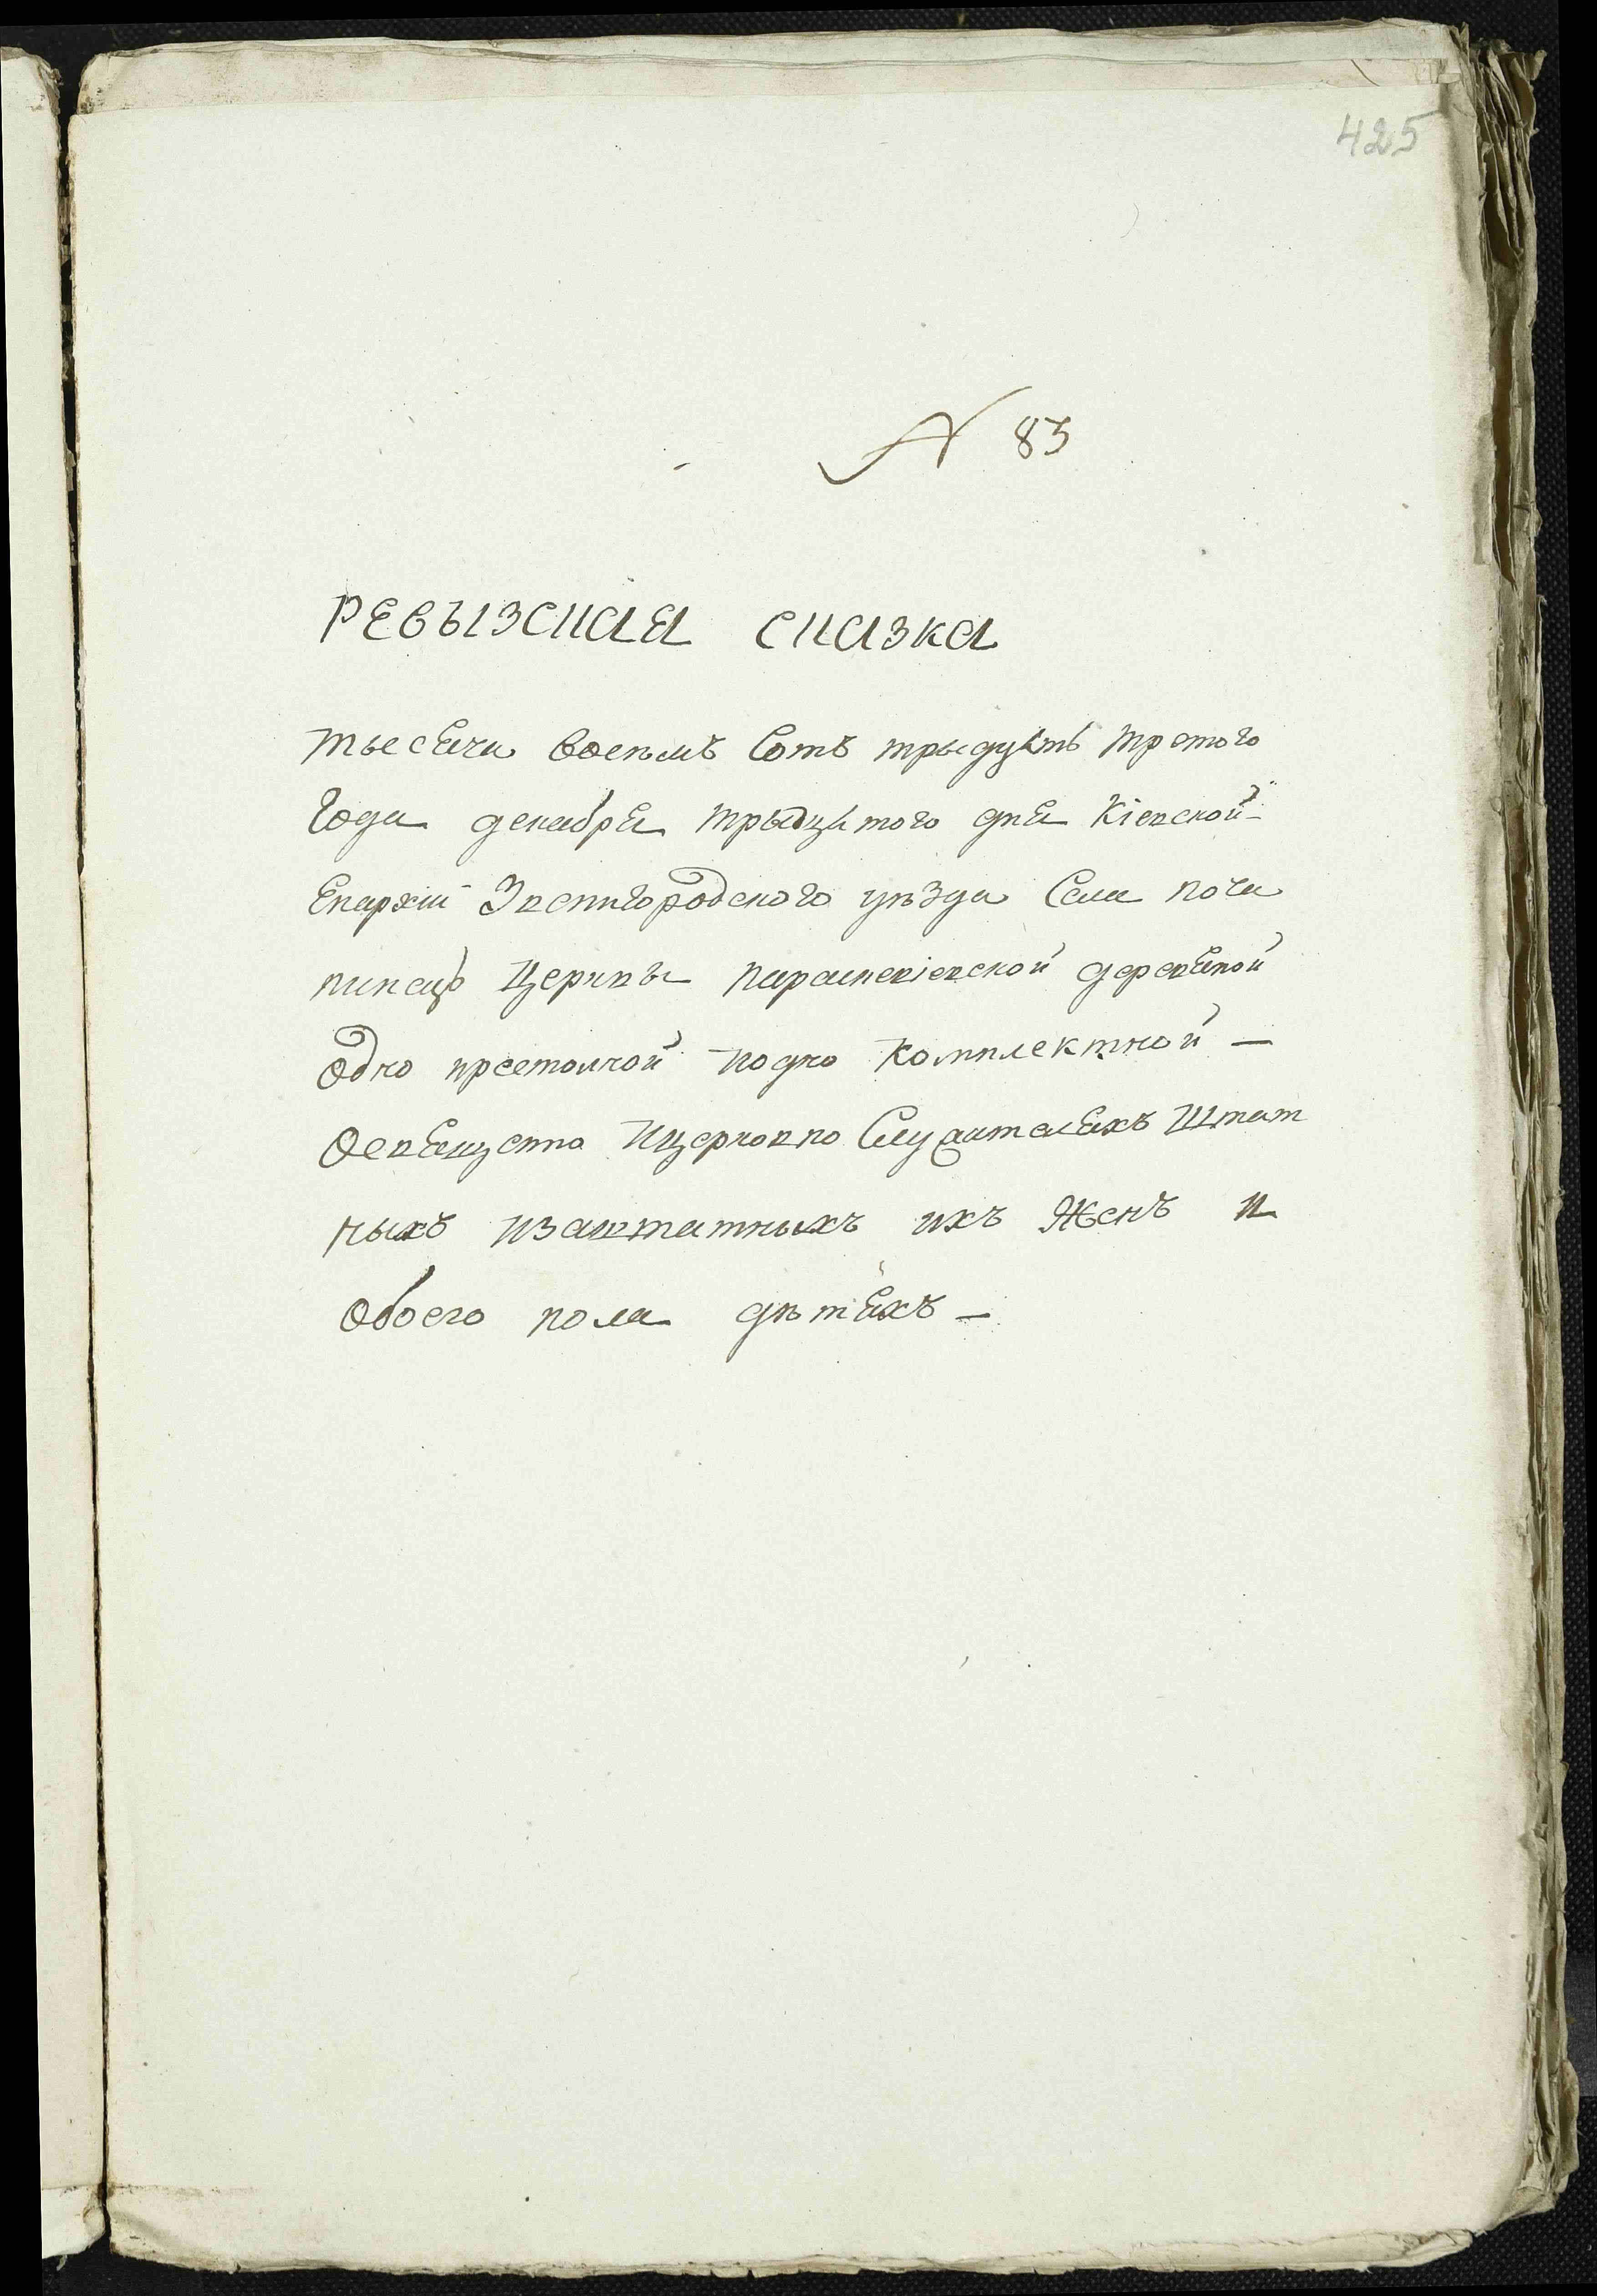 425
№ 83
РЕВЫЗСКАЯ СКАЗКА
тысяча восемъ Сотъ трыдцять третого
Года декабря трыдцятого дня Кіевской
Епархіи Звенигородского уѣзда Села поча
пинецъ Церквы параскевіевской деревяной
Одно престолной Иодно Комплектной —
Освященно Ицерковно Служителяхъ Штат
ныхъ Изаштатныхъ ихъ Женъ и
Обоего пола дѣтяхъ —